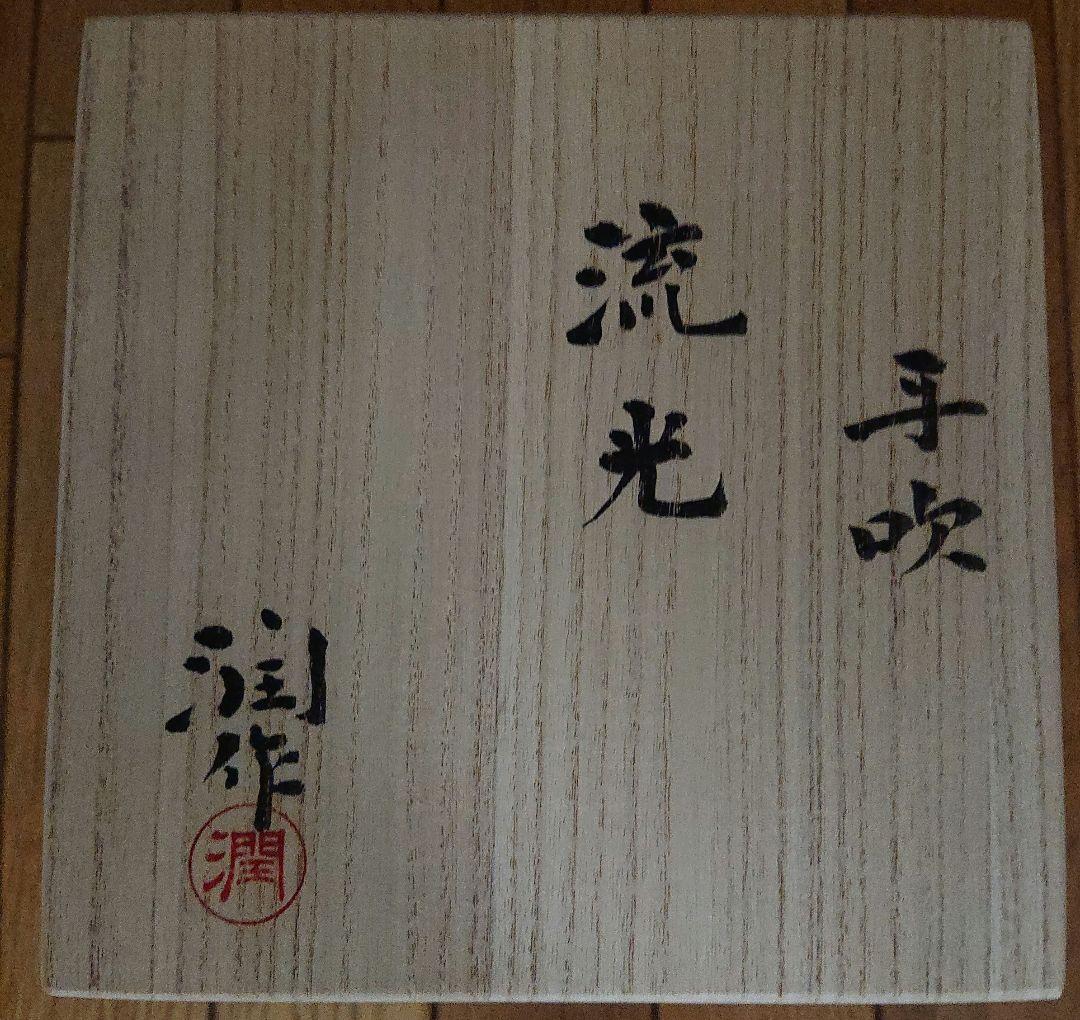 手吹
流光
润作
潤